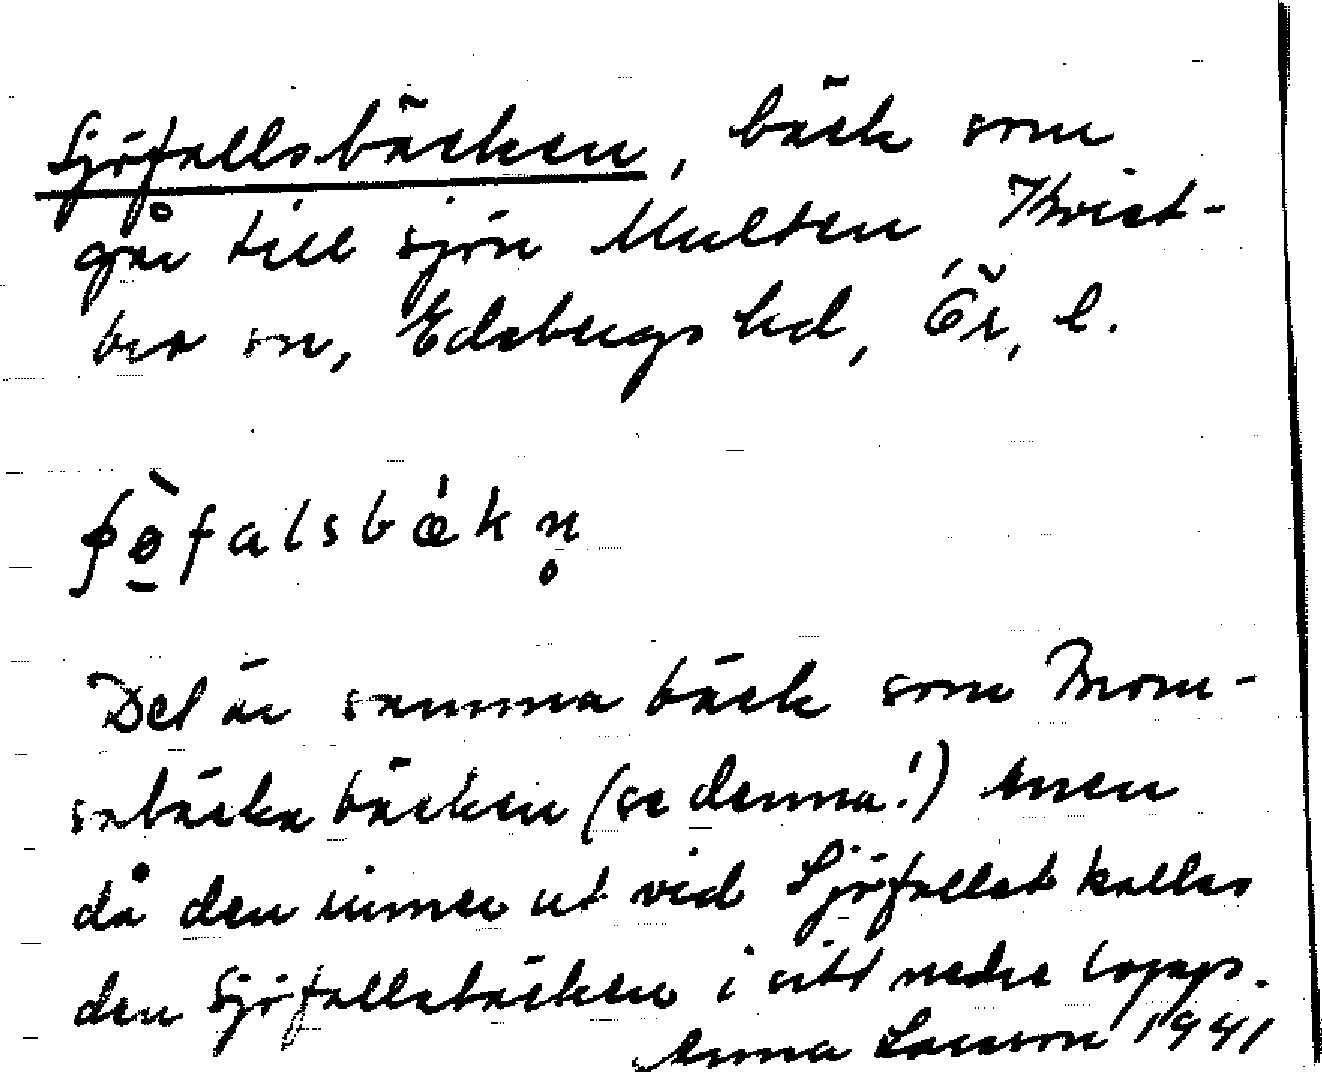 Sjöfallsbäcken, bäck som
går till sjön Multen Kvist-
bro sn, Edsbergs hd, Ör, l.
ʃø̀falsbǽkn̥
Det är samma bäck som Mom-
sabäcka bäcken (se denna!) men
då den rinner ut vid Sjöfallet kallas
den Sjöfallsbäcken i sitt nedre lopp.
Anna Larsson 1941